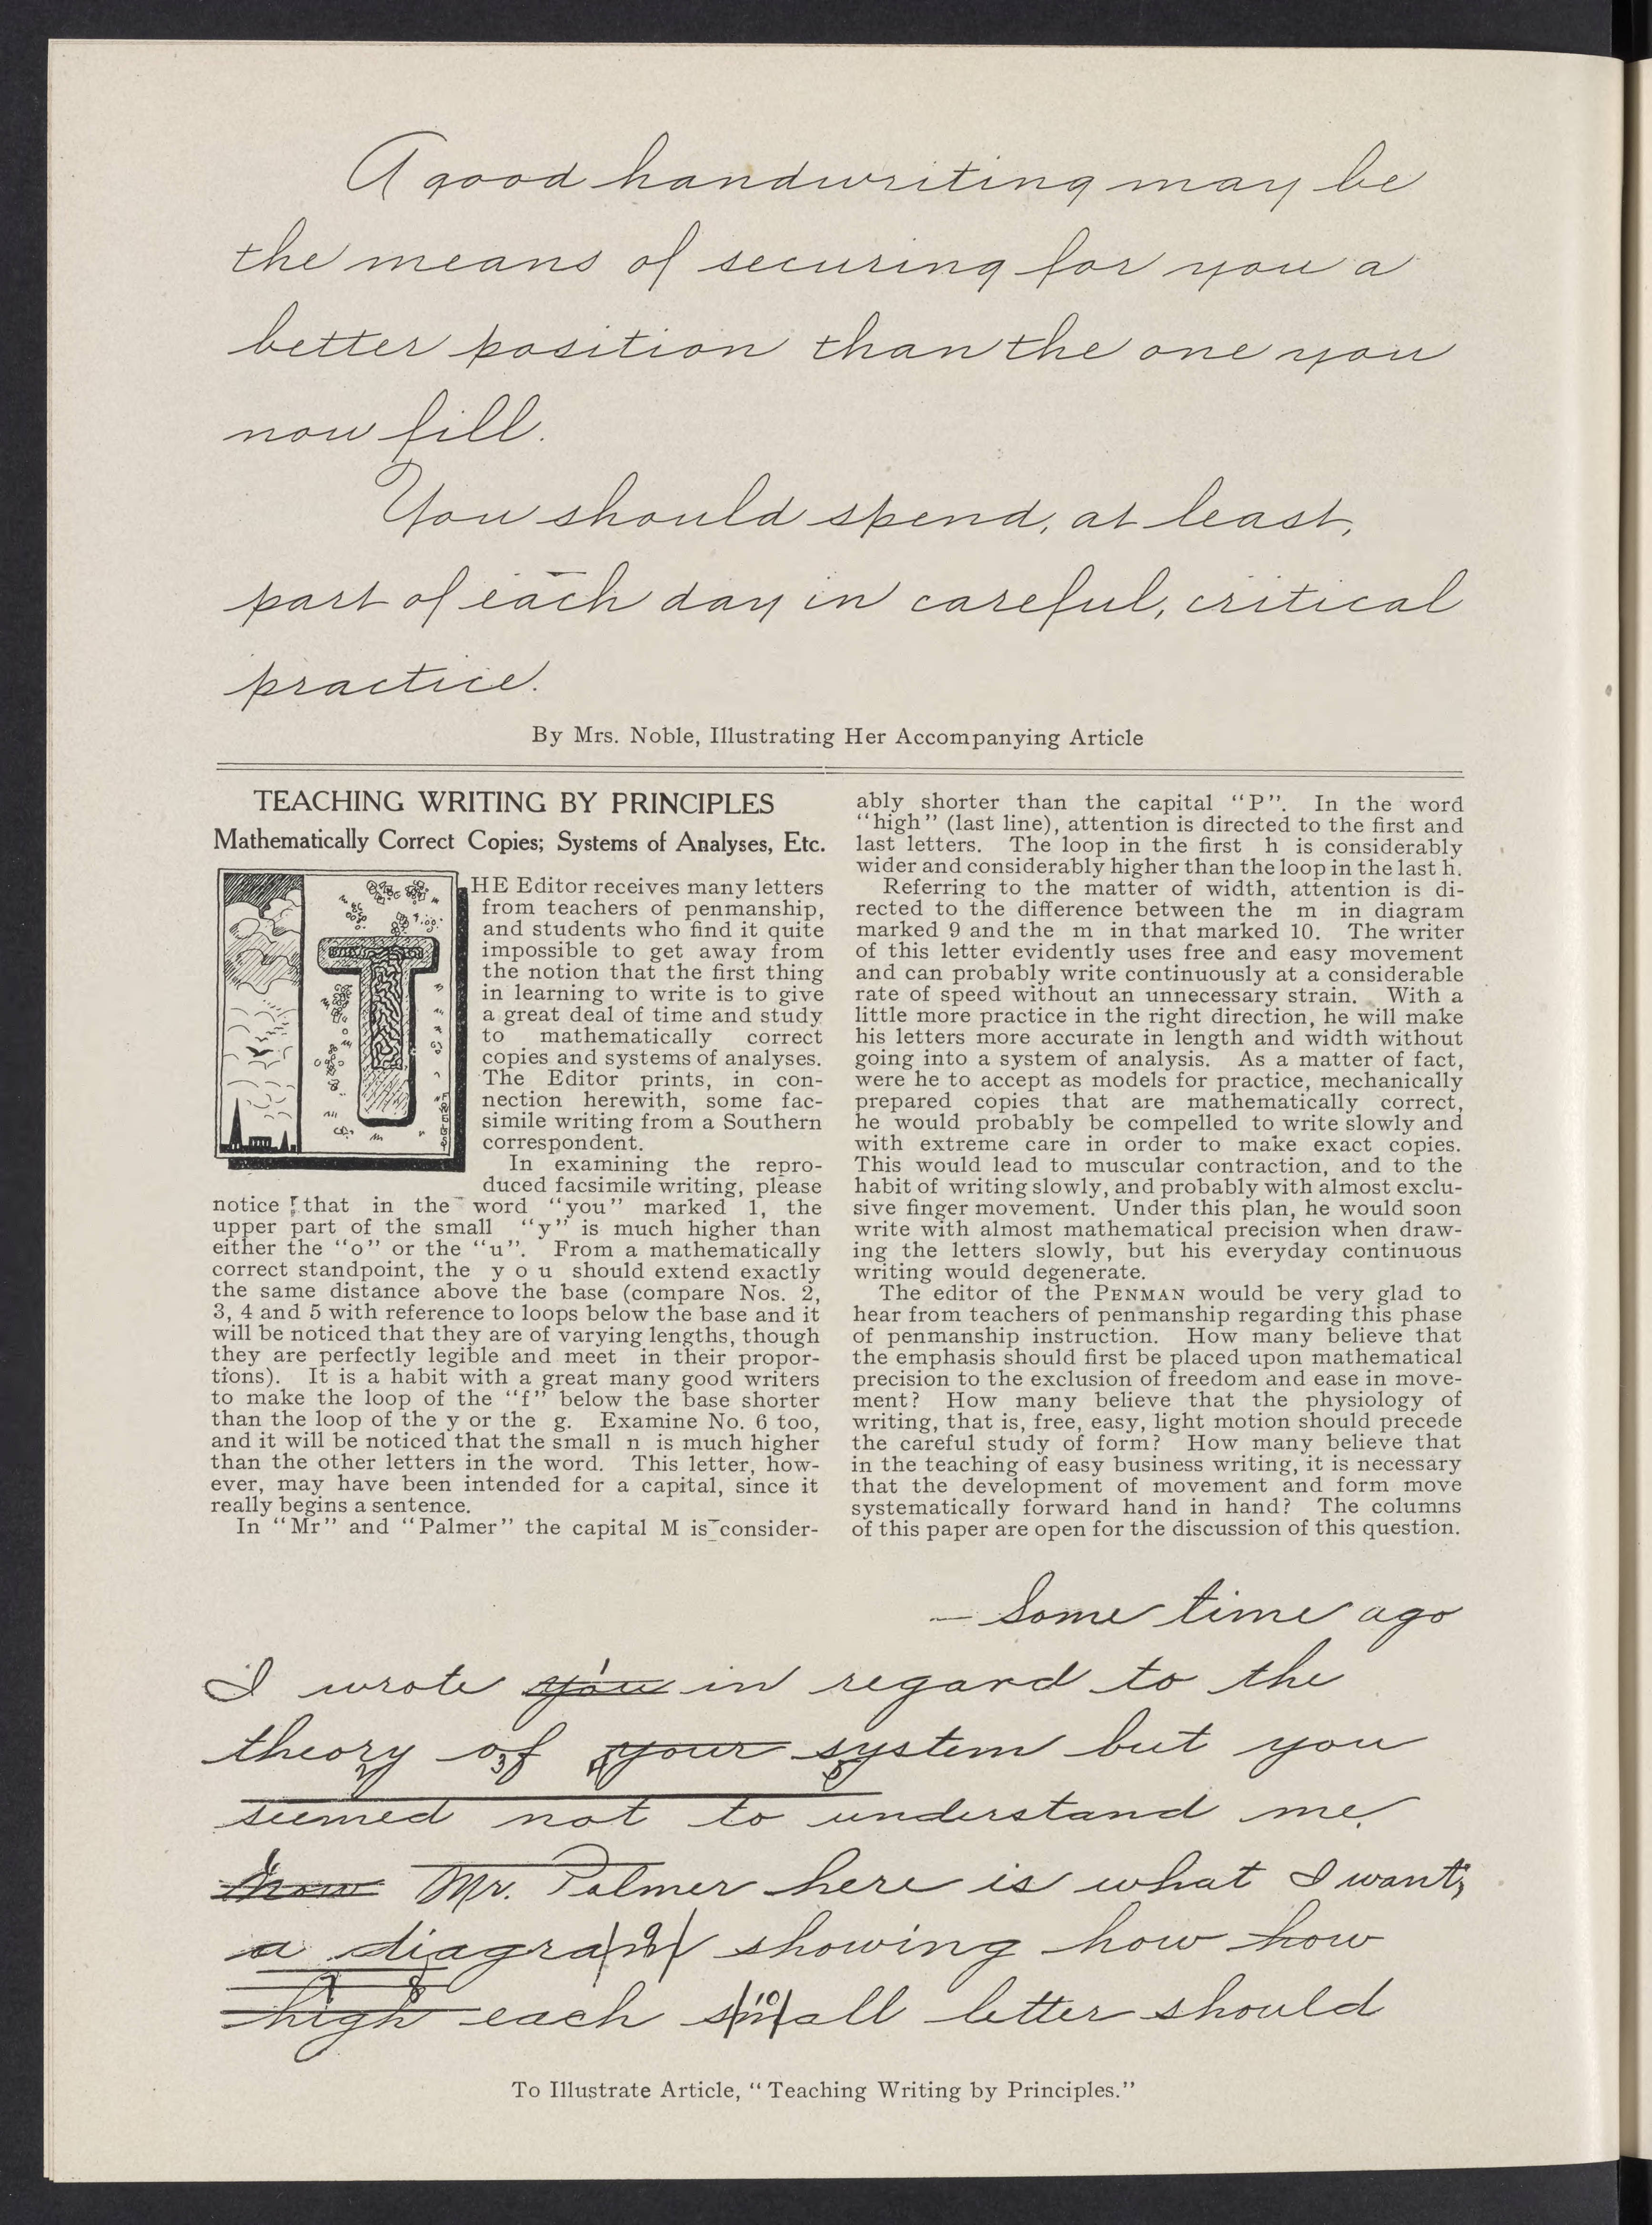 A good handwriting may be
the means of securing for you a
better position than the one you
now fill.
You should spend, at least,
part of each day in careful, critical
practice.
By Mrs. Noble, Illustrating Her Accompanying Article
TEACHING WRITING BY PRINCIPLES
Mathematically Correct Copies; Systems of Analyses, Etc.
THE Editor receives many letters
from teachers of penmanship,
and students who find it quite
impossible to get away from
the notion that the first thing
in learning to write is to give
a great deal of time and study
to mathematically correct
copies and systems of analyses.
The Editor prints, in con-
nection herewith, some fac-
simile writing from a Southern
correspondent.
In examining the repro-
duced facsimile writing, please
notice that in the word "you" marked 1, the
upper part of the small "y" is much higher than
either the "o" or the "u". From a mathematically
correct standpoint, the y o u should extend exactly
the same distance above the base (compare Nos. 2,
3, 4 and 5 with reference to loops below the base and it
will be noticed that they are of varying lengths, though
they are perfectly legible and meet in their propor-
tions). It is a habit with a great many good writers
to make the loop of the "f" below the base shorter
than the loop of the y or the g. Examine No. 6 too,
and it will be noticed that the small n is much higher
than the other letters in the word. This letter, how-
ever, may have been intended for a capital, since it
really begins a sentence.
In "Mr" and "Palmer" the capital M is consider-
ably shorter than the capital "P". In the word
"high" (last line), attention is directed to the first and
last letters. The loop in the first h is considerably
wider and considerably higher than the loop in the last h.
Referring to the matter of width, attention is di-
rected to the difference between the m in diagram
marked 9 and the m in that marked 10. The writer
of this letter evidently uses free and easy movement
and can probably write continuously at a considerable
rate of speed without an unnecessary strain. With a
little more practice in the right direction, he will make
his letters more accurate in length and width without
going into a system of analysis. As a matter of fact,
were he to accept as models for practice, mechanically
prepared copies that are mathematically correct,
he would probably be compelled to write slowly and
with extreme care in order to make exact copies.
This would lead to muscular contraction, and to the
habit of writing slowly, and probably with almost exclu-
sive finger movement. Under this plan, he would soon
write with almost mathematical precision when draw-
ing the letters slowly, but his everyday continuous
writing would degenerate.
The editor of the PENMAN would be very glad to
hear from teachers of penmanship regarding this phase
of penmanship instruction. How many believe that
the emphasis should first be placed upon mathematical
precision to the exclusion of freedom and ease in move-
ment? How many believe that the physiology of
writing, that is, free, easy, light motion should precede
the careful study of form? How many believe that
in the teaching of easy business writing, it is necessary
that the development of movement and form move
systematically forward hand in hand? The columns
of this paper are open for the discussion of this question.
— Some time ago
I wrote you in regard to the
theory of your system but you
seemed not to understand me.
now Mr. Palmer here is what I want,
a diagram showing how how
high each small letter should
To Illustrate Article, "Teaching Writing by Principles."